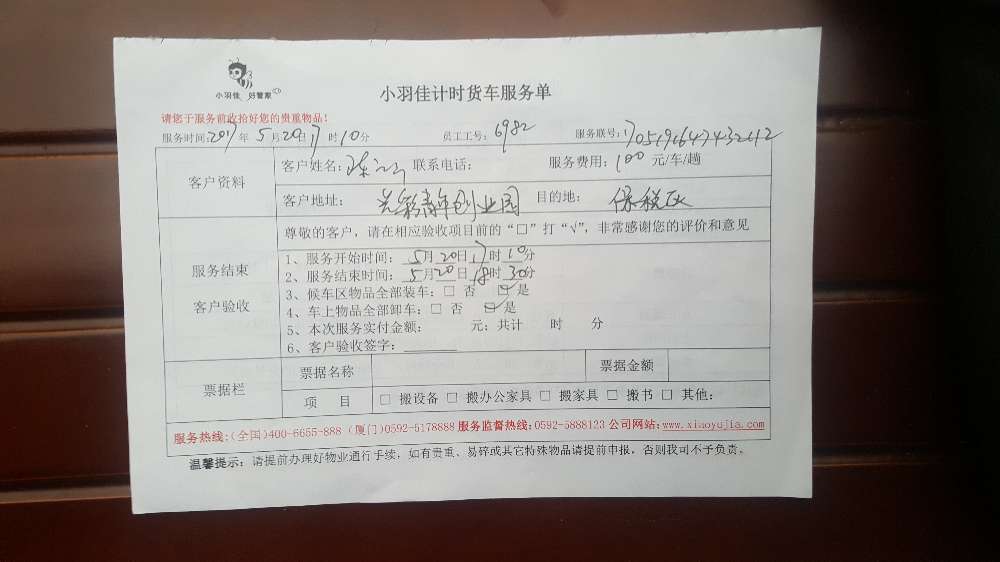 小羽佳 好管家
小羽佳计时货车服务单
请您于服务前收拾好您的贵重物品!
服务时间:2017年5月20日17时10分 员工工号:6982 服务联号:170519647432212
客户资料
客户姓名:陈 联系电话: 服务费用:100元/车/趟
客户地址: 光彩青年创业园 目的地: 保税区
服务结束
客户验收
尊敬的客户,请在相应验收项目前的“□”打“√”,非常感谢您的评价和意见
1、服务开始时间:5月20日17时10分
2、服务结束时间:5月20日18时30分
3、候车区物品全部装车:□ 否 ☑是
4、车上物品全部卸车:□ 否 ☑是
5、本次服务实付金额: 元;共计 时 分
6、客户验收签字:
票据栏
票据名称 票据金额
项 目 □ 搬设备 □ 搬办公家具 □ 搬家具 □ 搬书 □ 其他:
服务热线:(全国)400-6655-888 (厦门)0592-5178888 服务监督热线:0592-5888123 公司网站:www.xiaoyujia.com
温馨提示:请提前办理好物业通行手续,如有贵重、易碎或其它特殊物品请提前申报,否则我司不予负责。